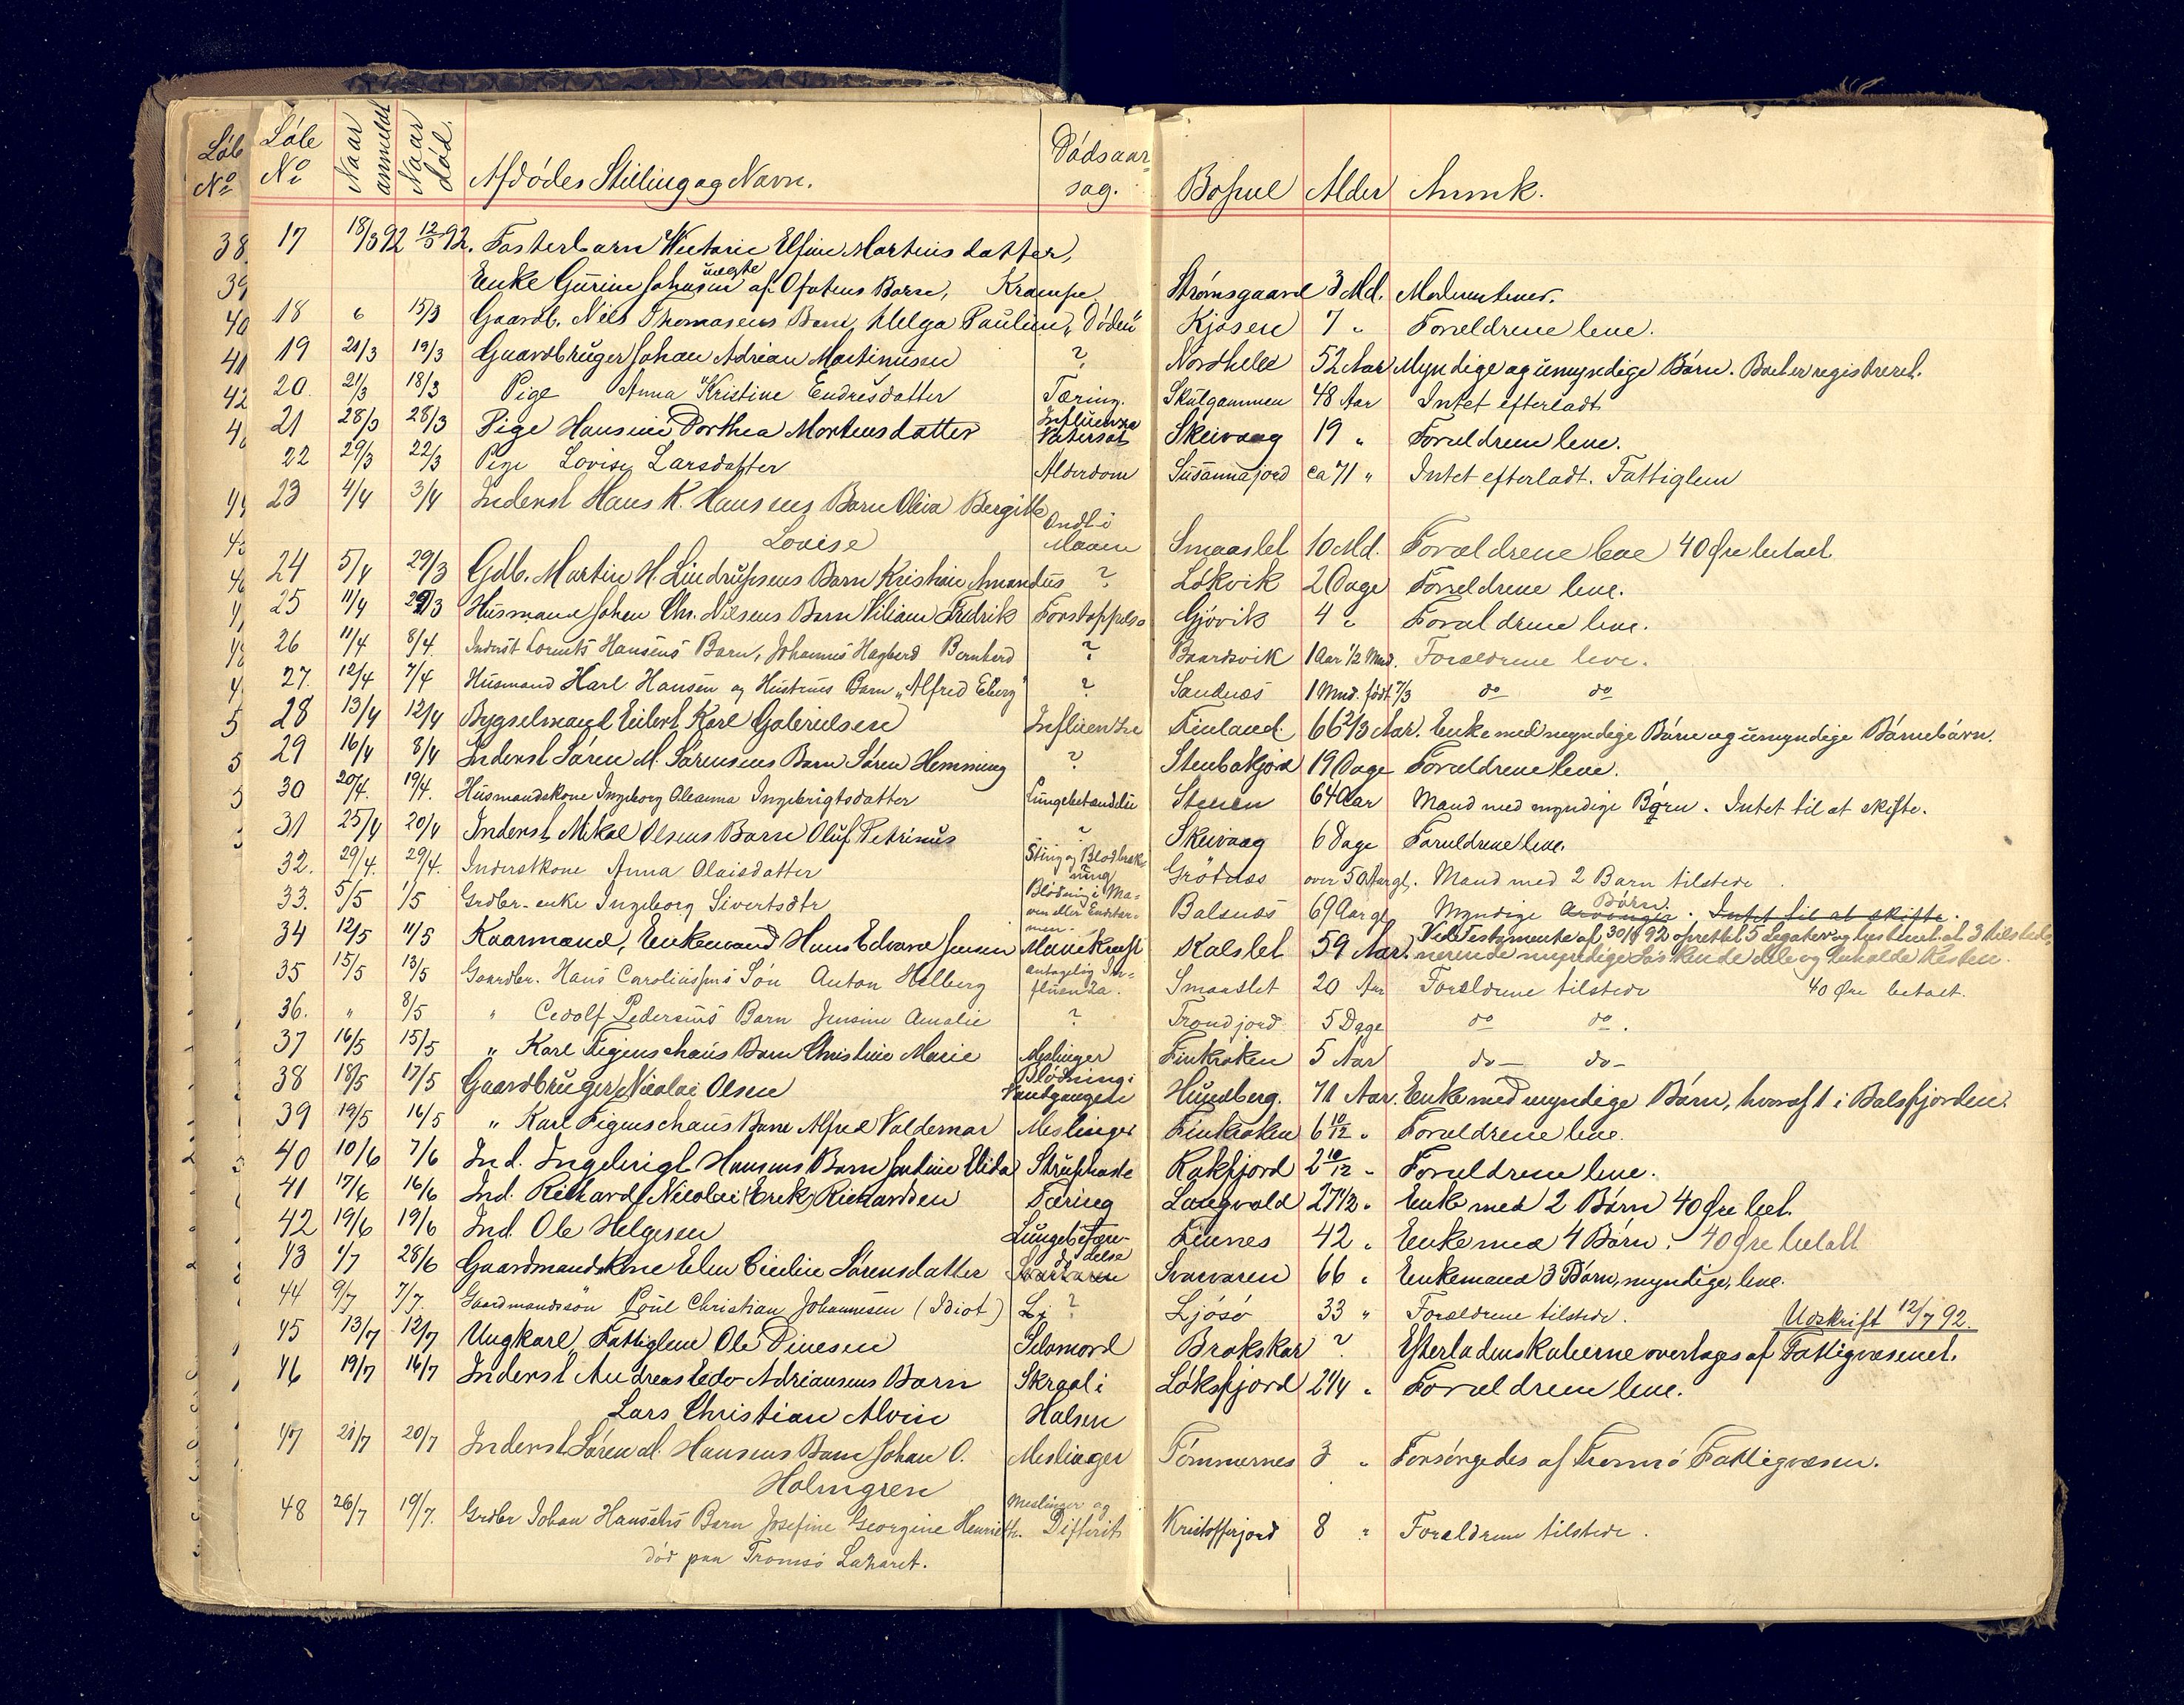 Løbe No Naar anmeldt Naar død. Afdødes Stilling og Navn. Dødsaarsag. Bopæl Alder Anmk.
17 18/3 92 12/3 92. Fosterbarn Victorie Elfine Martinsdatter,
Enke Gurine Johnsens uægte af Ofotens Barn, Krampe Strømsgaard 3 Md. Moderen lever.
18 6 15/3 Gaardb. Nils Thomasens Barn, Helga Pauline „Døden" Kjosen 7 „ Forældrene leve.
19 21/3 19/3 Gaardbruger Johan Adrian Martinusen ? Nordhella 52 Aar Myndige og umyndige Børn. Boet er registreret.
20. 21/3 18/3 Pige Anna Kristine Endresdatter Tæring. Skulgammen 48 Aar Intet efterladt
21 28/3 28/3 Pige Hansine Dorthea Mortensdatter Influenza Skeivaag 19 „ Forældrene leve.
22 29/3 22/3 Pige Lovise Larsdatter Alderdom Susannajord ca 71 „ Intet efterladt. Fattiglem
23 4/4 3/4 Inderst Hans K. Hansens Barn Olea Bergitte
Lovise Ondt i Maven Smaaslet 10 Md. Forældrene leve 40 Øre betalt
24 5/4 29/3 Gdb. Martin H. Lindrupsens Barn Kristian Amandus ? Løkvik 2 Dage Forældrene leve.
25 11/4 29/3 Husmand Johan Chr. Nilsens Barn Viliam Fredrik Forstoppelse Gjøvik 4 „ Forældrene leve.
26 11/4 8/4. Inderst Lorents Hansens Barn, Johannes Hagberd Bernherd ? Baardsvik 1 Aar 1/2 Mnd. Forældrene leve.
27. 12/4 7/4 Husmand Karl Hansen og Hustrus Barn „Alfred Eberg" ? Sandnæs 1 Mnd. født 7/3 do do
28 13/4 12/4 Bygselmand Eilert Karl Gabrielsen Influentza Finland. 66 2/3 Aar. Enke med myndige Børn og umyndige Børnebørn.
29 16/4 8/4 Inderst Søren M. Sørensens Barn Søren Hemming ? Stenbakjord 19 Dage Forældrene leve.
30 20/4. 19/4. Husmandskone Ingeborg Oleanna Ingebrigtsdatter Lungebetændelse Stenen 64 Aar Mand med myndige Børn. Intet til at skifte.
31 25/4 20/4 Inderst Mikal Olsens Barn Oluf Petrinus ? Skeivaag 6 Dage Forældrene leve.
32. 29/4. 29/4. Inderstkone Anna Olaisdatter Sting og Blodbrækning Grøtnæs over 50 Aar gl. Mand med 2 Barn tilstede
33. 5/5 1/5 Grdbr-enke Ingeborg Sivertsdtr Blødning i Maven eller Endetarmen. Balsnæs 69 Aar gl Myndige Arvinger Børn. Intet til at skifte.
34 12/5 11/5 Kaarmand, Enkemand Hans Edvard Jensen Mavekræft Kalslet 59 Aar. Vide Testamente af 30/4 92 oprettet 5 Legater og bestemt at 3 tilstede-
værende myndige Søskende dele og beholde Resten.
35 15/5 13/5 Gaardbr. Hans Caroliussens Søn Anton Helberg antagelig Influenza. Smaaslet 20 Aar Forældrene tilstede 40 Øre betalt.
36. „ 8/5 „ Cedolf Pedersens Barn Jensine Amalie ? Trondjord 5 Dage do do.
37 16/5 15/5 „ Karl Figenschaus Barn Christine Marie Meslinger Finkroken 5 Aar do- do-
38 18/5 17/5 Gaardbruger Nicolai Olsen Blødning i Vandgangen Hundberg. 71 Aar. Enke med myndige Børn, hvoraf 1 i Balsfjorden.
39 19/5 16/5 „ Karl Figenschaus Barn Alfred Valdemar Meslinger Finkroken 6 10/12 „ Forældrene leve.
40 10/6 7/6 Ind. Ingebrigt Hansens Barn Jentine Elida Strubhoste Rakfjord 2 10/12 „ Forældrene leve.
41 17/6 16/6 Ind. Richard Nicolai (Erik) Richardsen Tæring Langvold 27 1/2 „ Enke med 2 Børn 40 Øre bet.
42 19/6 19/6 Ind. Ole Helgesen Lungebetændelse Finnes 42 „ Enke med 4 Børn. 40 Øre betalt
43 1/7 28/6 Gaardmandskone Elen Cicilie Sørensdatter Svarvaren 66 „ Enkemand 3 Børn, myndige, leve.
44 9/7 7/7. Gaardmandssøn Poul Christian Johannesen (Idiot) Lj ? Ljøsø 33 „ Forældrene tilstede. Udskrift 12/7 92.
45 13/7 12/7 Ungkarl, Fattiglem Ole Dinesen Selvmord Brokskar ? Efterladenskaberne overtages af Fattigvæsenet.
46 19/7 16/7 Inderst Andreas Adriansens Barn Skraal i Løksfjord 2 1/4 „ Forældrene leve.
Lars Christian Alvin Halsen
47 21/7 20/7 Inderst Søren M. Hansens Barn Johan O. Meslinger Tømmernes 3 „ Forsørgedes af Tromsø Fattigvæsen.
Holmgren
48 26/7 19/7. Grdbr Johan Hansens Barn Josefine Georgine Henriette. Meslinger og Difterit Kristofferjord 8 „ Forældrene tilstede.
død paa Tromsø Lazaret.